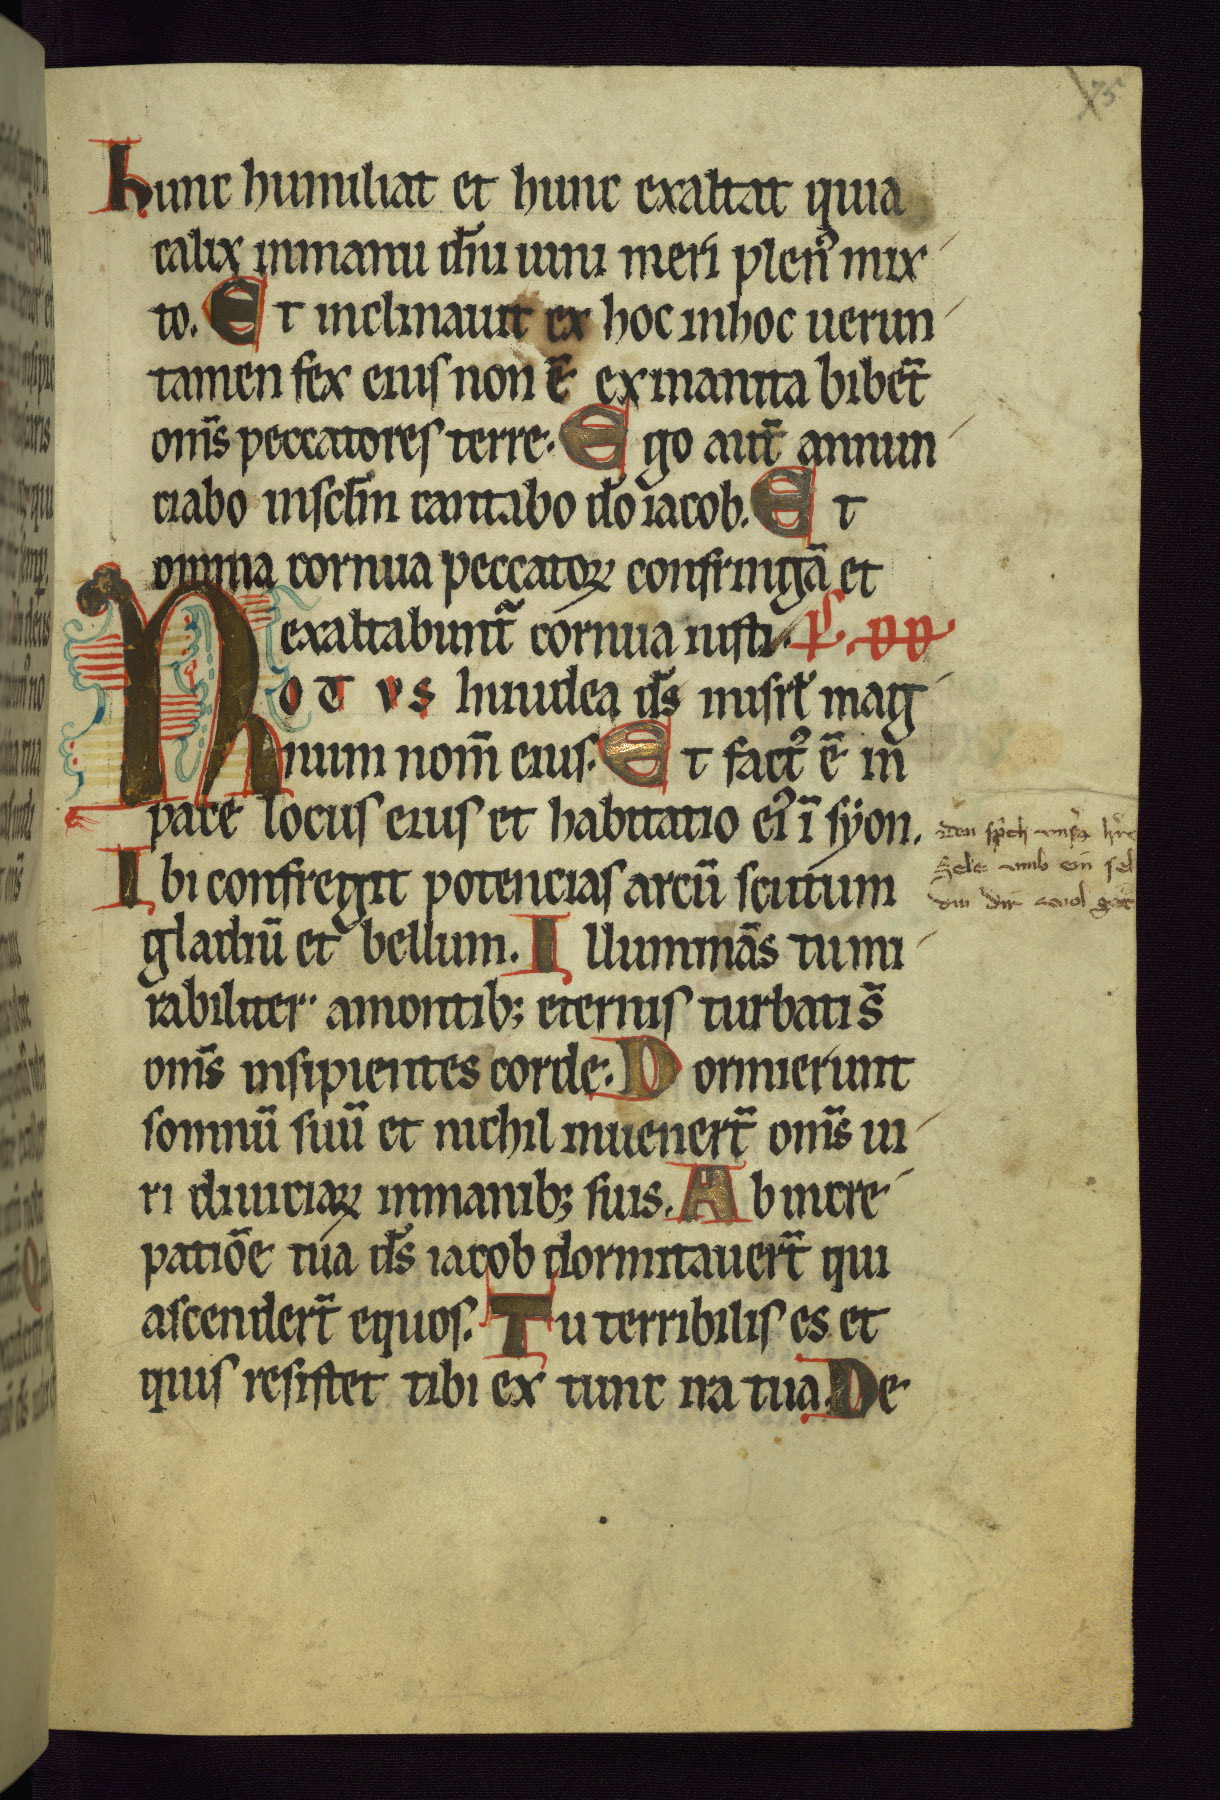 75
hunc humiliat et hunc exaltat quia
calix inmanu dn̄i uini meri plen᷒ mix
to. Et inclinauit ex hoc inhoc uerun
tamen fex eius non ē exinanita bibēt
omn̄s peccatores terre. Ego aut̄ annun
ciabo insc̄lm cantabo do̅ iacob. Et
omnia cornua peccatoꝝ confringā et
exaltabunt᷑ cornua iusti. ps.
NOTVS hiniudea ds̄ inisrl̄ mag
num nom̄ eius. Et fact᷒ ē in
pace locus eius et habitatio ei᷒ ī syon.
Ibi confregit potencias arcū scutum
gladiū et bellum. Illuminās tu mi
rabiliter amontib; eternis turbati s̄
omn̄s insipientes corde. Dormierunt
somnū suū et nichil inuenert̄ omn̄s ui
ri diuiciaꝝ inmanib; suis. Ab incre
patiōe tua ds̄ iacob dormitauert̄ qui
ascendert̄ equos. Tu terribilis es et
quis resistet tibi ex tunc ira tua. De